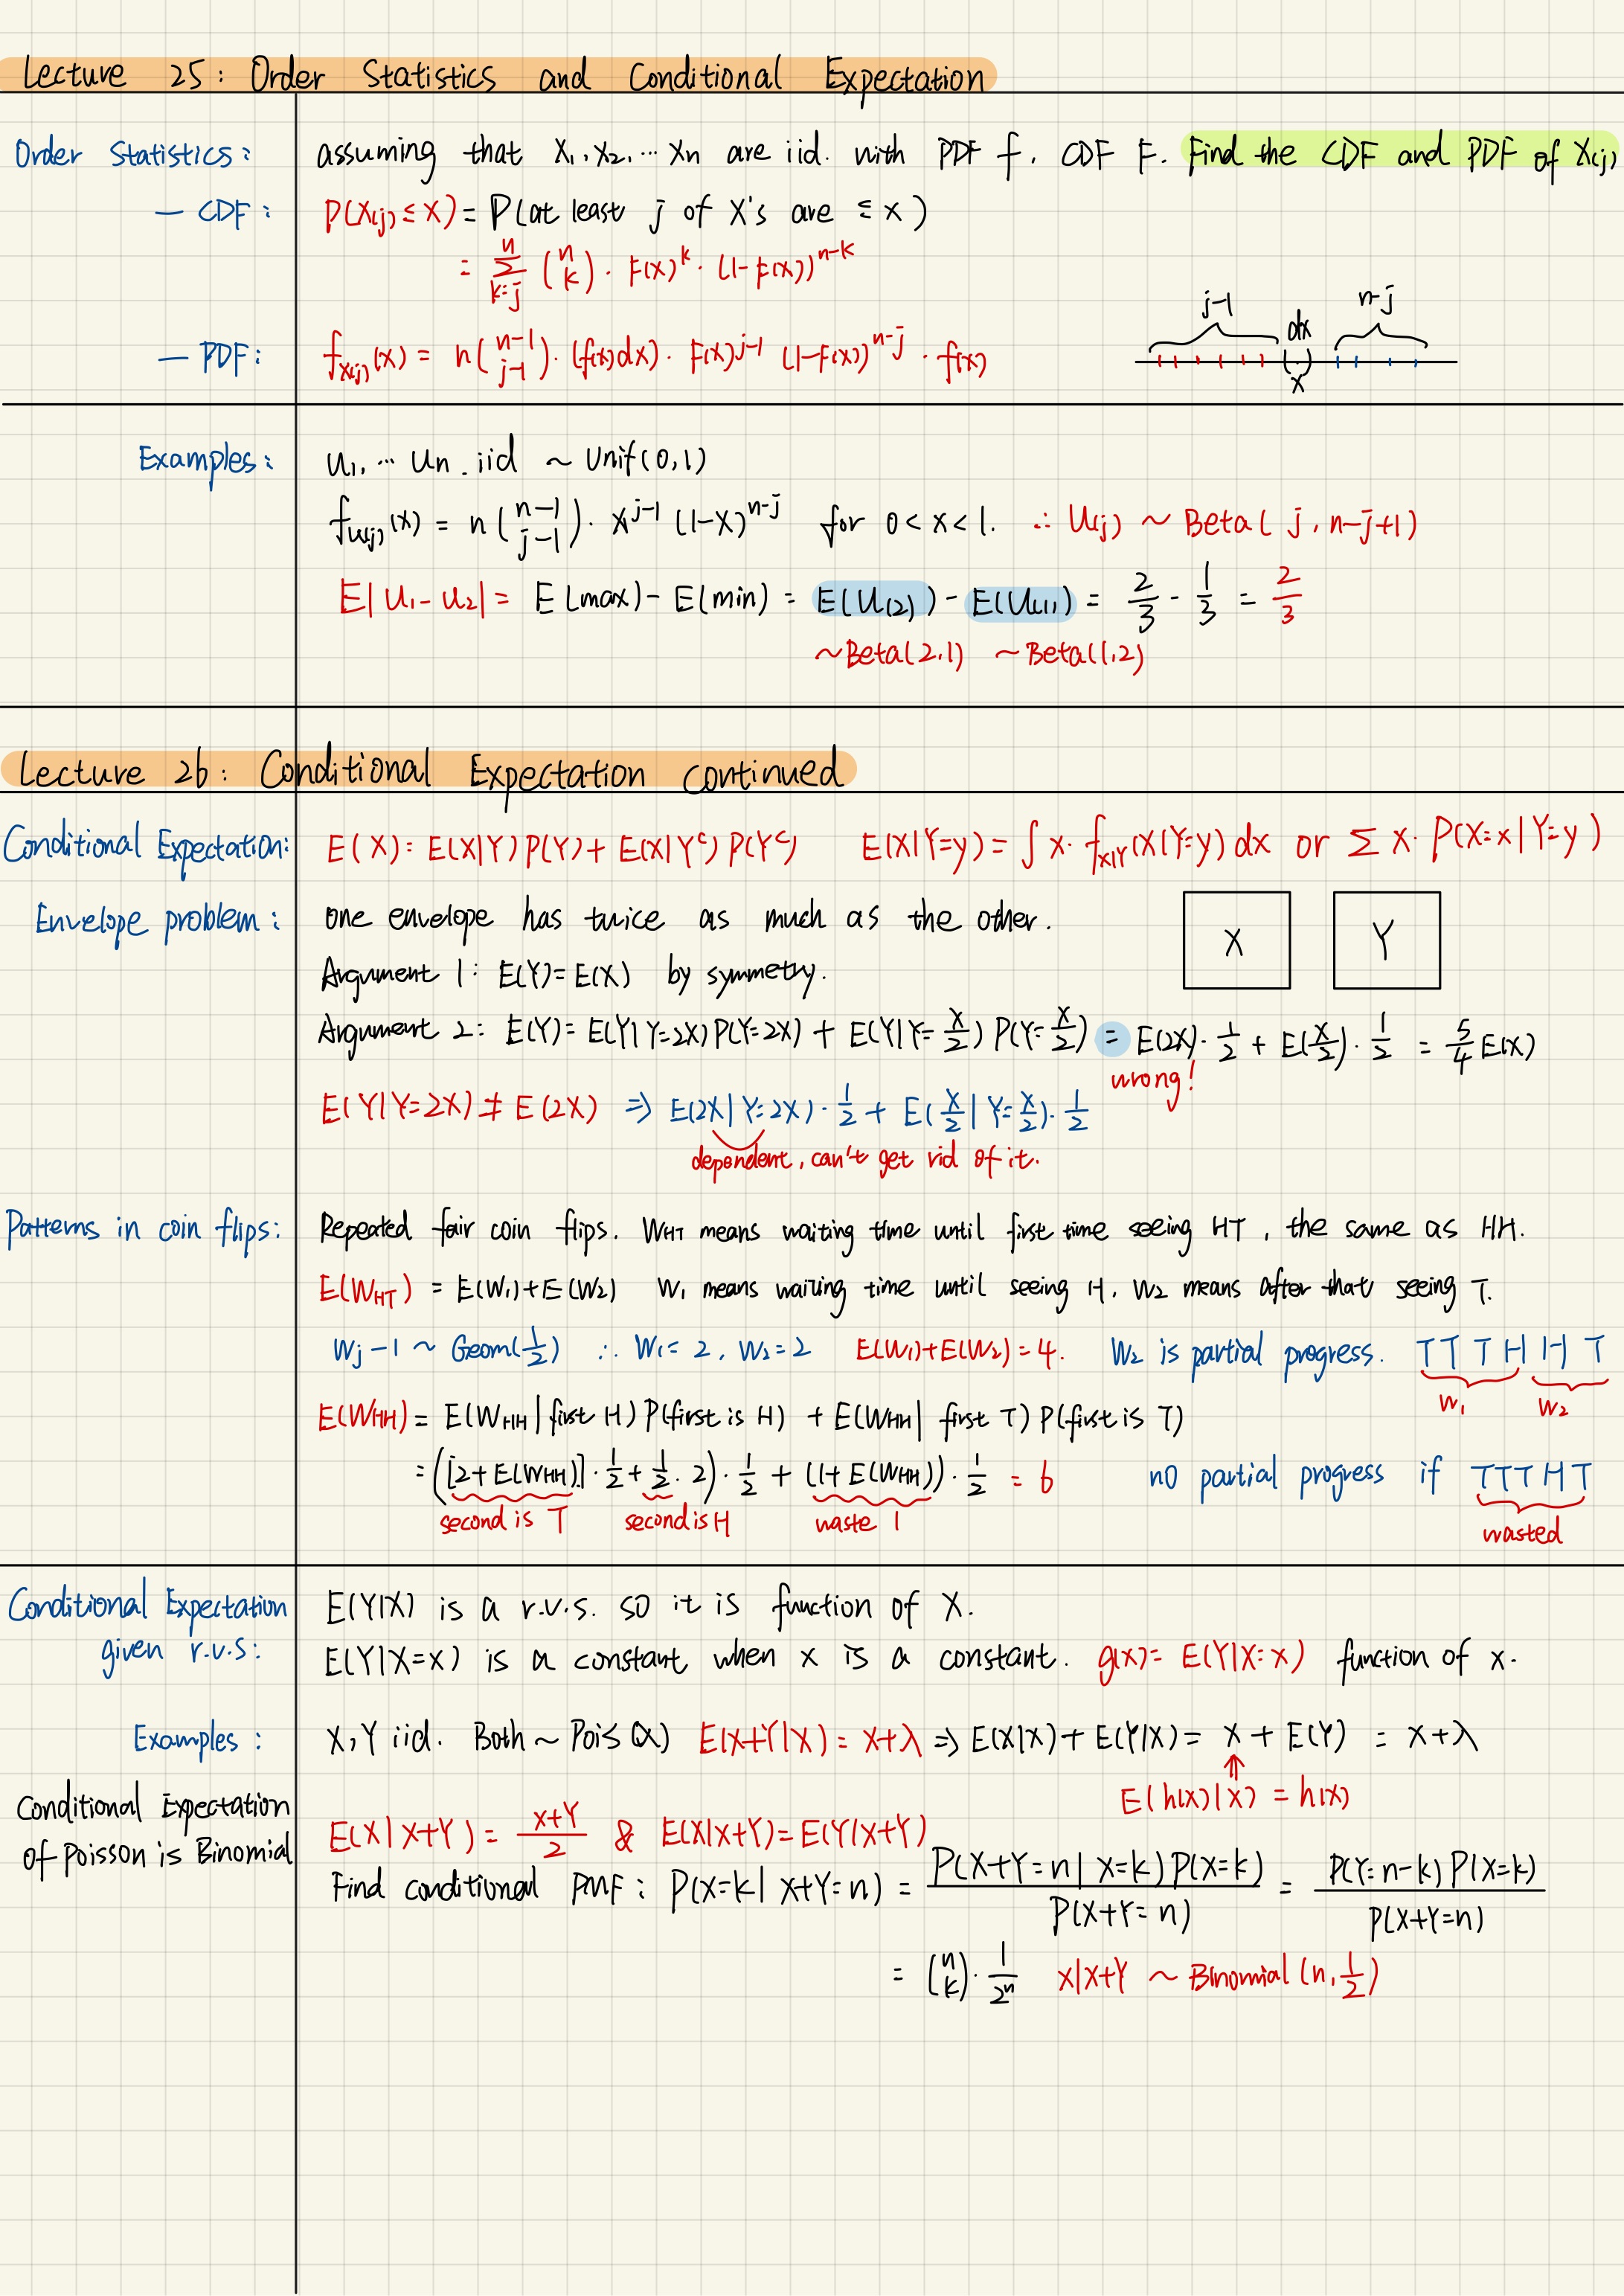 Lecture 25: Order Statistics and Conditional Expectation
Order Statistics: assuming that X₁, X₂, ⋯ Xn are iid. with PDF f. CDF F. Find the CDF and PDF of X(j)
— CDF: P(X(j) ≤ x) = P(at least j of X's are ≤ x)
= Σ_{k=j}^{n} (n k) · F(x)^k · (1-F(x))^{n-k}
j-1 dx n-j
— PDF: f_{X(j)}(x) = n(n-1 j-1) · (f(x)dx) · F(x)^{j-1} (1-F(x))^{n-j} · f(x)
x
Examples: U₁, ⋯ Un. iid ~ Unif(0,1)
f_{U(j)}(x) = n(n-1 j-1) · X^{j-1} (1-X)^{n-j} for 0 < x < 1. ∴ U(j) ~ Beta(j, n-j+1)
E|U₁-U₂| = E(max) - E(min) = E(U(2)) - E(U(1)) = 2/3 - 1/3 = 2/3
~Beta(2,1) ~Beta(1,2)
Lecture 26: Conditional Expectation continued
Conditional Expectation: E(X) = E(X|Y)P(Y) + E(X|Y^c)P(Y^c) E(X|Y=y) = ∫ x · f_{X|Y}(X|Y=y) dx or Σ x · P(X=x|Y=y)
Envelope problem: one envelope has twice as much as the other.
X Y
Argument 1: E(Y)=E(X) by symmetry.
Argument 2: E(Y) = E(Y|Y=2X)P(Y=2X) + E(Y|Y=X/2)P(Y=X/2) = E(2X)·1/2 + E(X/2)·1/2 = 5/4 E(X)
wrong!
E(Y|Y=2X) ≠ E(2X) ⇒ E(2X|Y=2X)·1/2 + E(X/2|Y=X/2)·1/2
dependent, can't get rid of it.
Patterns in coin flips: Repeated fair coin flips. W_HT means waiting time until first time seeing HT, the same as HH.
E(W_HT) = E(W₁)+E(W₂) W₁ means waiting time until seeing H, W₂ means after that seeing T.
Wj-1 ~ Geom(1/2) ∴ W₁=2, W₂=2 E(W₁)+E(W₂)=4. W₂ is partial progress. T T T H H T
W₁ W₂
E(W_HH) = E(W_HH|first H)P(first is H) + E(W_HH|first T)P(first is T)
= ([2+E(W_HH)]·1/2 + 1/2·2)·1/2 + (1+E(W_HH))·1/2 = 6 no partial progress if TTTHT
second is T second is H waste 1 wasted
Conditional Expectation given r.v.s: E(Y|X) is a r.v.s. so it is function of X.
E(Y|X=x) is a constant when x is a constant. g(x) = E(Y|X=x) function of x.
Examples: X, Y iid. Both ~ Pois(λ) E(X+Y|X) = X+λ ⇒ E(X|X)+E(Y|X) = X + E(Y) = X+λ
↑
E(h(X)|X) = h(X)
Conditional Expectation of Poisson is Binomial
E(X|X+Y) = X+Y/2 & E(X|X+Y)=E(Y|X+Y)
Find conditional PMF: P(X=k|X+Y=n) = P(X+Y=n|X=k)P(X=k)/P(X+Y=n) = P(Y=n-k)P(X=k)/P(X+Y=n)
= (n k) · 1/2ⁿ X|X+Y ~ Binomial(n, 1/2)